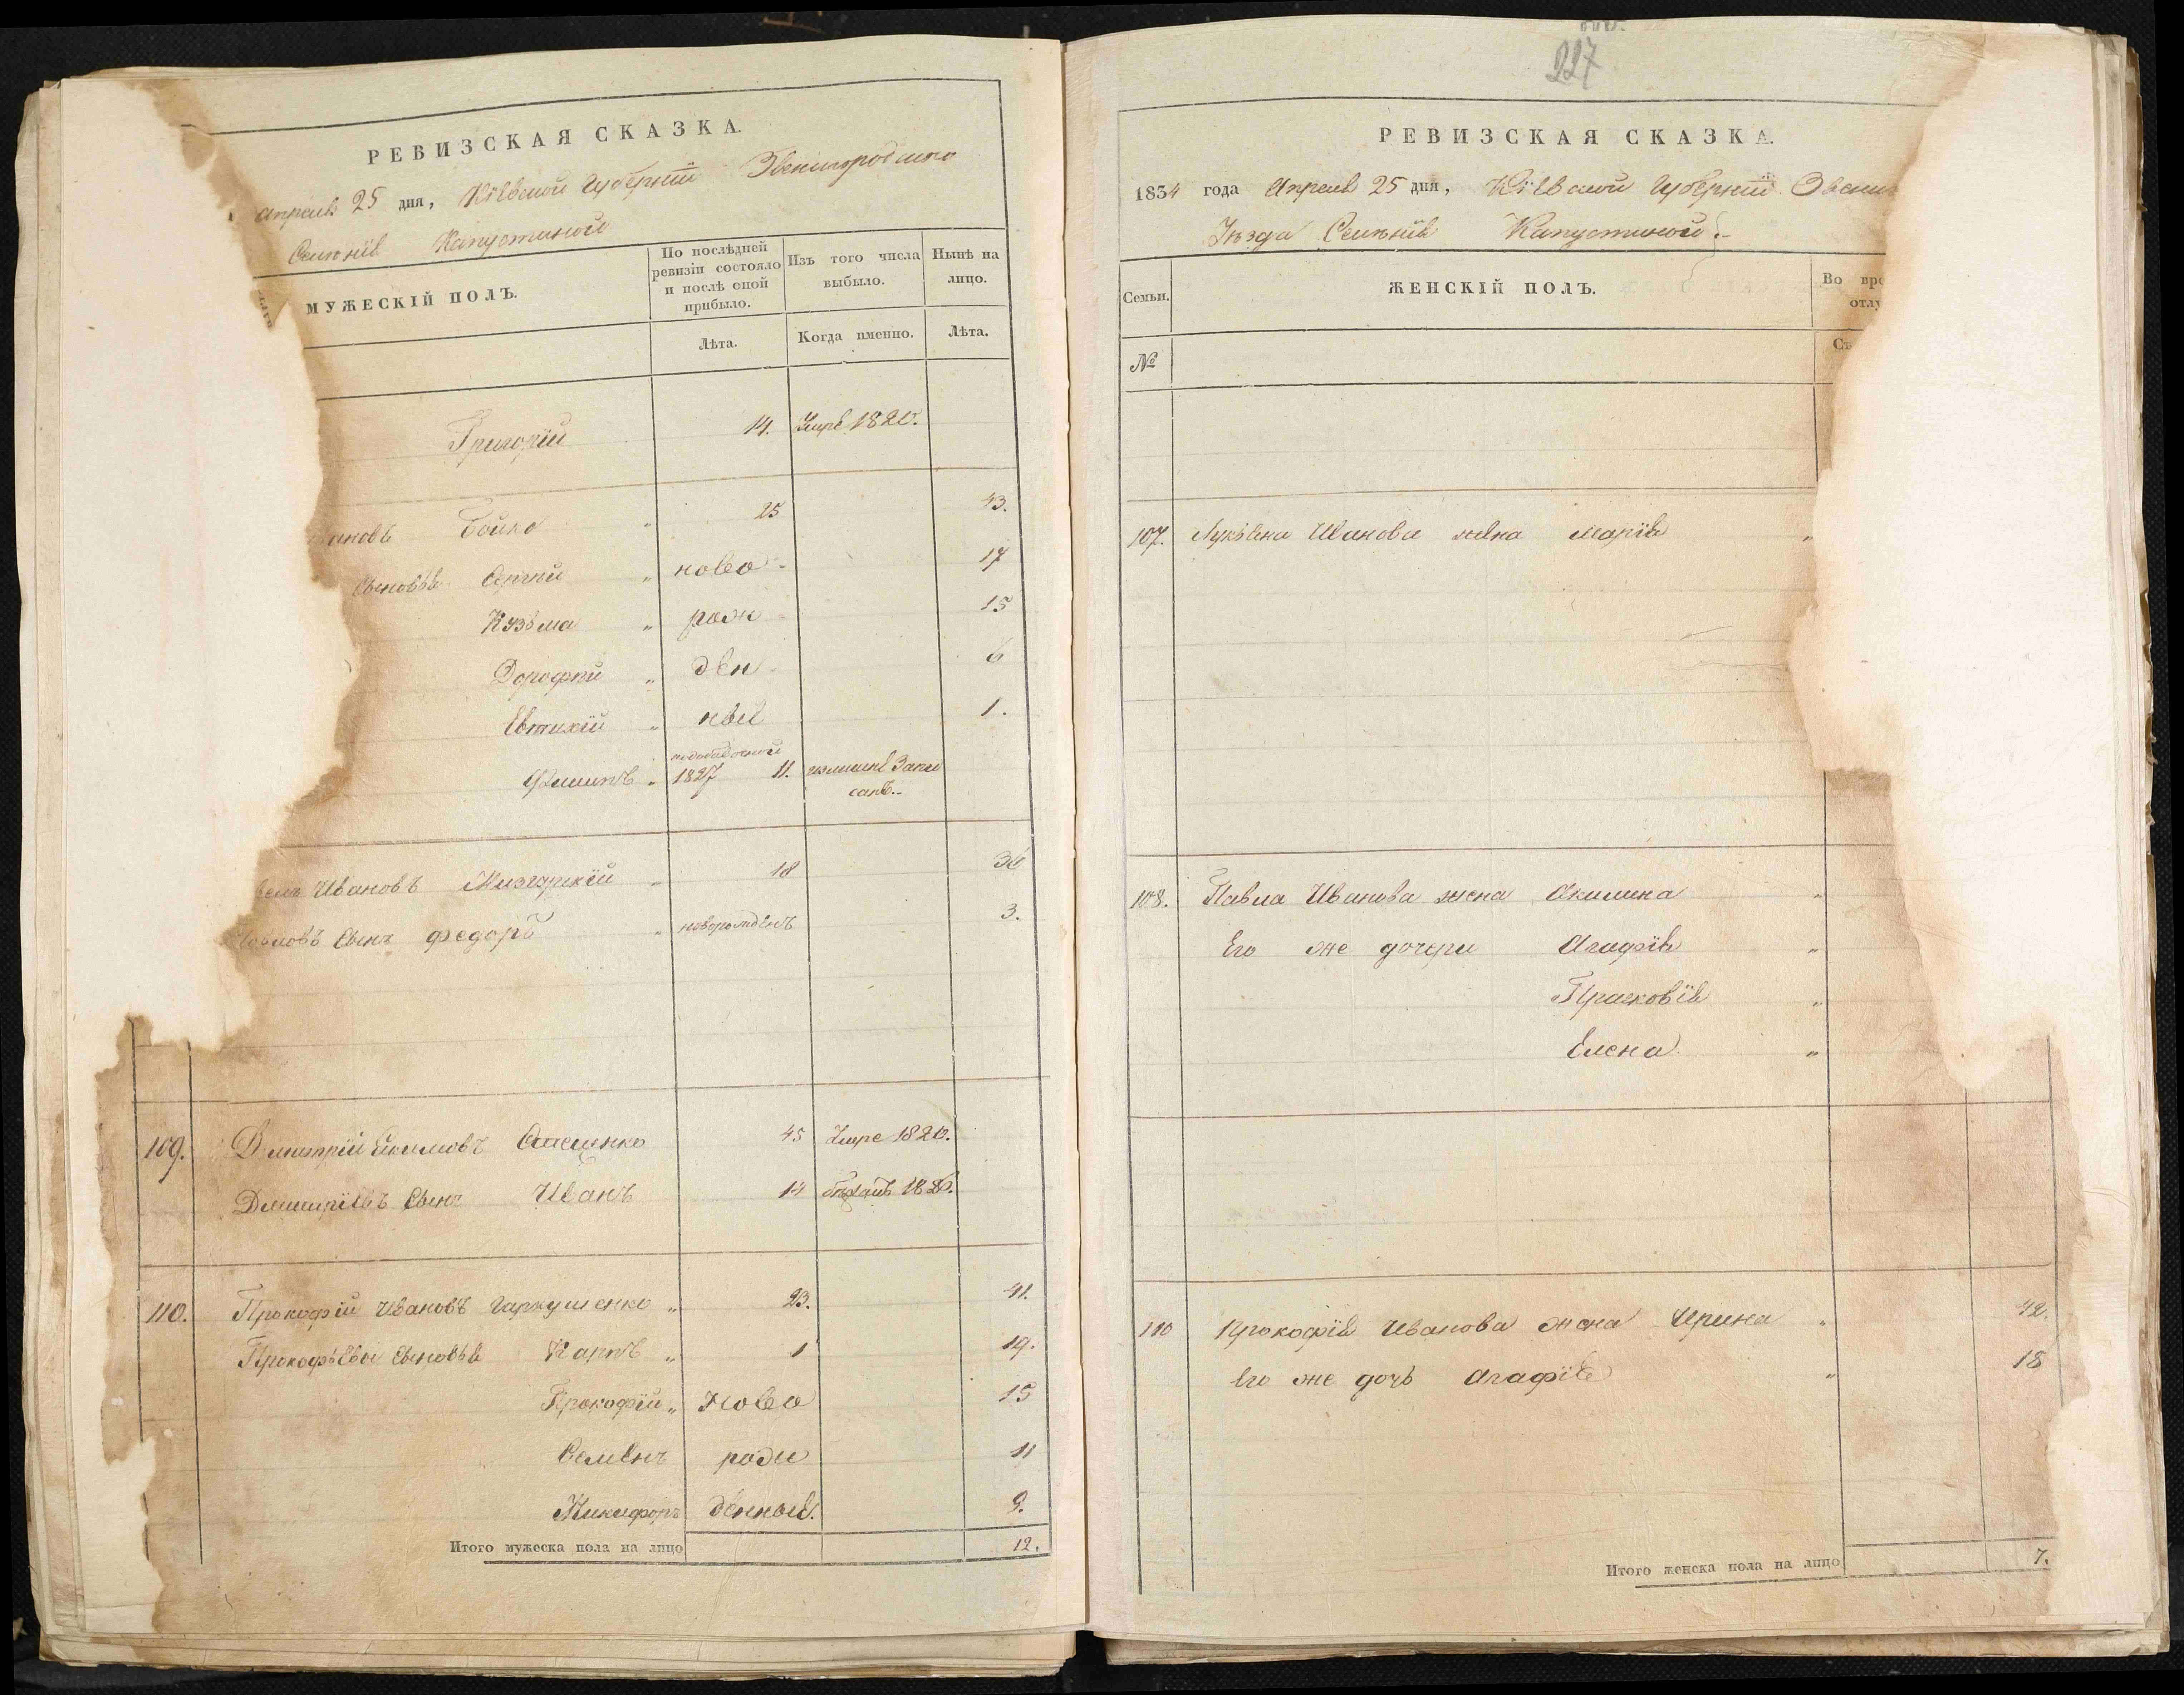 РЕВИЗСКАЯ СКАЗКА.
апреля 25 дня, Кіевской Губерніи Звенигородскаго
Селенія Капустиной
МУЖЕСКІЙ ПОЛЪ.
По послѣдней ревизіи состояло и послѣ оной прибыло.
Изъ того числа выбыло.
Нынѣ на лицо.
Лѣта.
Когда именно.
Лѣта.
Григорій 14. Умре 1820.
вановъ Бойко 25 43.
Сыновья Сергѣй ново 17
Кузьма рож 15
Дорофѣй ден 6
Евтихій ныя 1.
Филипъ 1827 11. Запи
санъ
велъ Ивановъ 18 36
Павловъ Сынъ Федоръ новорожденъ 3.
109. Дмитрій Степенко 45 Умре 1820.
Дмитріевъ Сынъ Иванъ 14
110. Прокофій Ивановъ Гаркушенко 23. 41.
Прокофьевы Сыновья Карпъ 1 19.
Прокофій ново 15
Семенъ рож 11
Никифоръ денные. 9.
Итого мужеска пола на лицо 12.
227
РЕВИЗСКАЯ СКАЗКА.
1834 года Апреля 25 дня, Кіевской Губерніи Звени
Уѣзда Селенія Капустиной.
Семьи.
ЖЕНСКІЙ ПОЛЪ.
Во вре
отлу
№
Съ
107. Лукьяна Иванова жена Марія
108. Павла Иванова жена Акилина
Его же дочери Агафія
Прасковія
Елена
110 Прокофія Иванова жена Ирина 42.
Его же дочь Агафія 18
Итого женска пола на лицо 7.